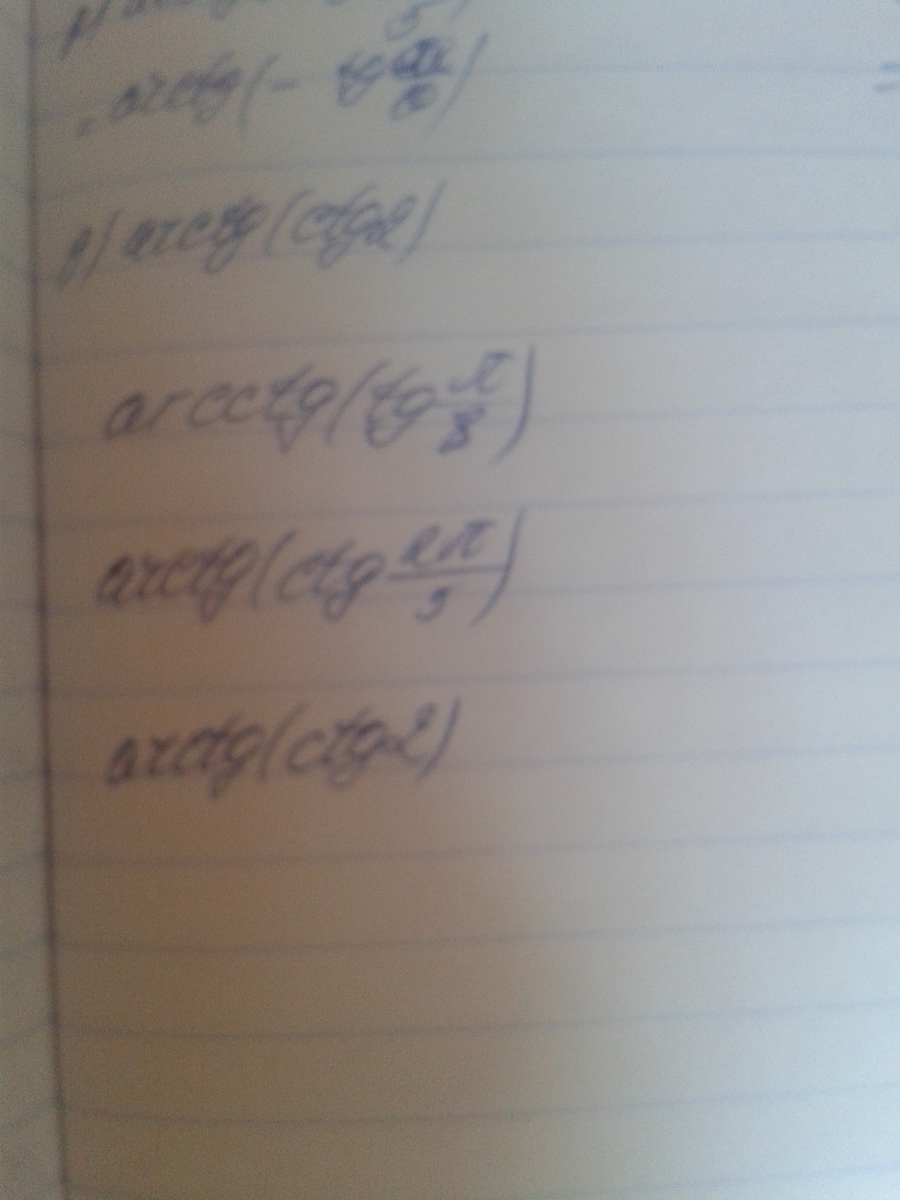 arctg(- tg
в) arctg(ctg2)
arcctg(tg π/8)
arctg(ctg 2π/5)
arctg(ctg2)